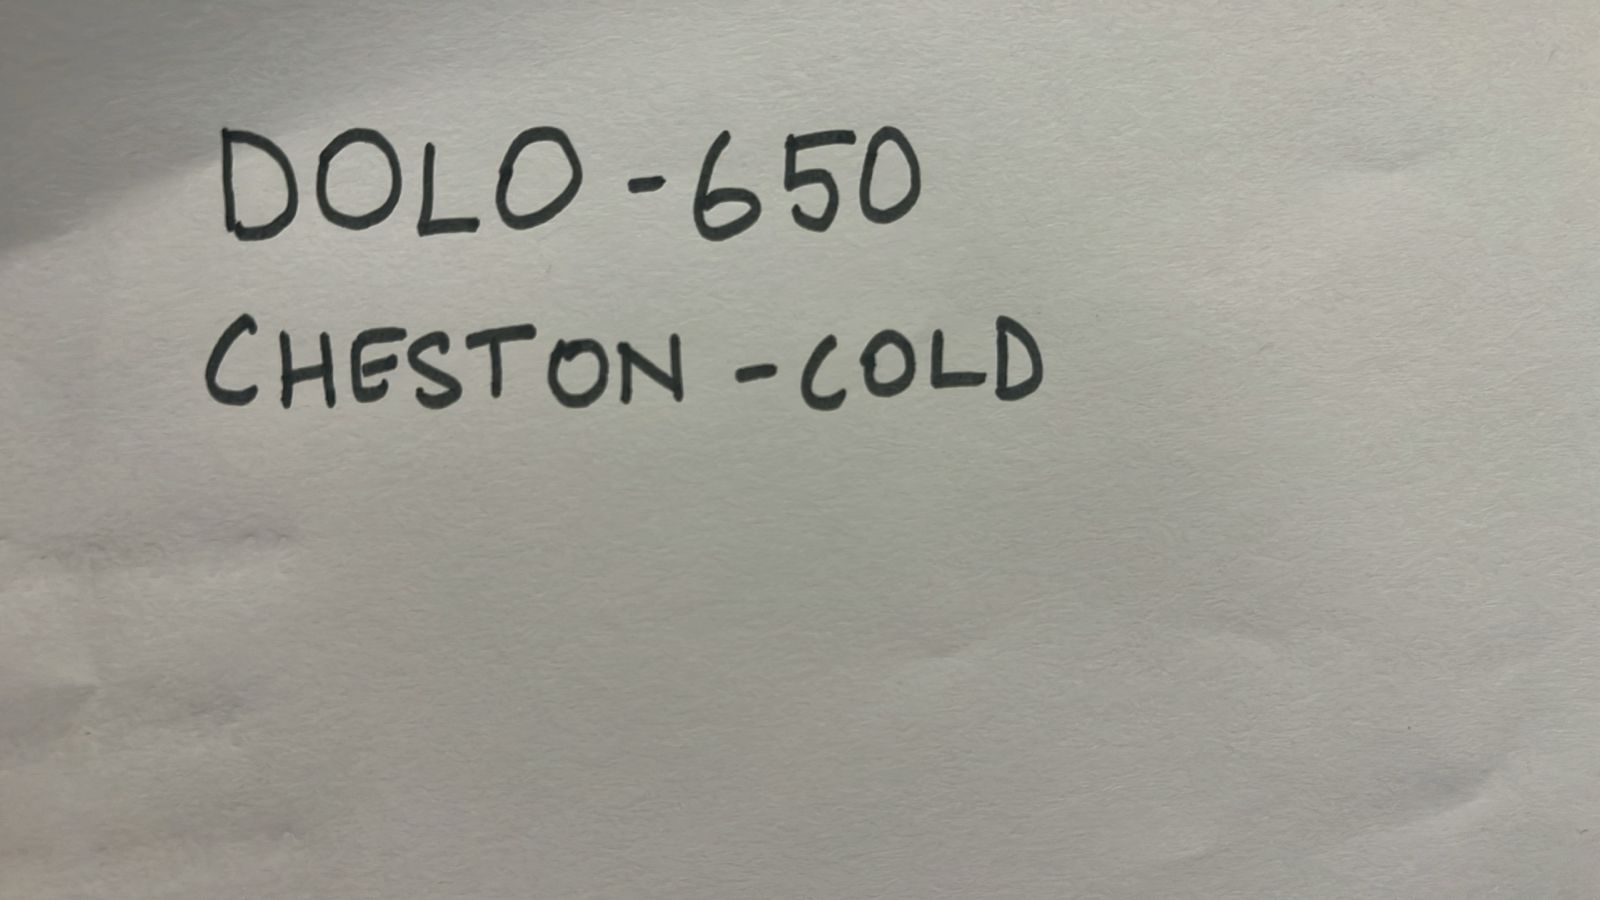 DOLO - 650
CHESTON - COLD